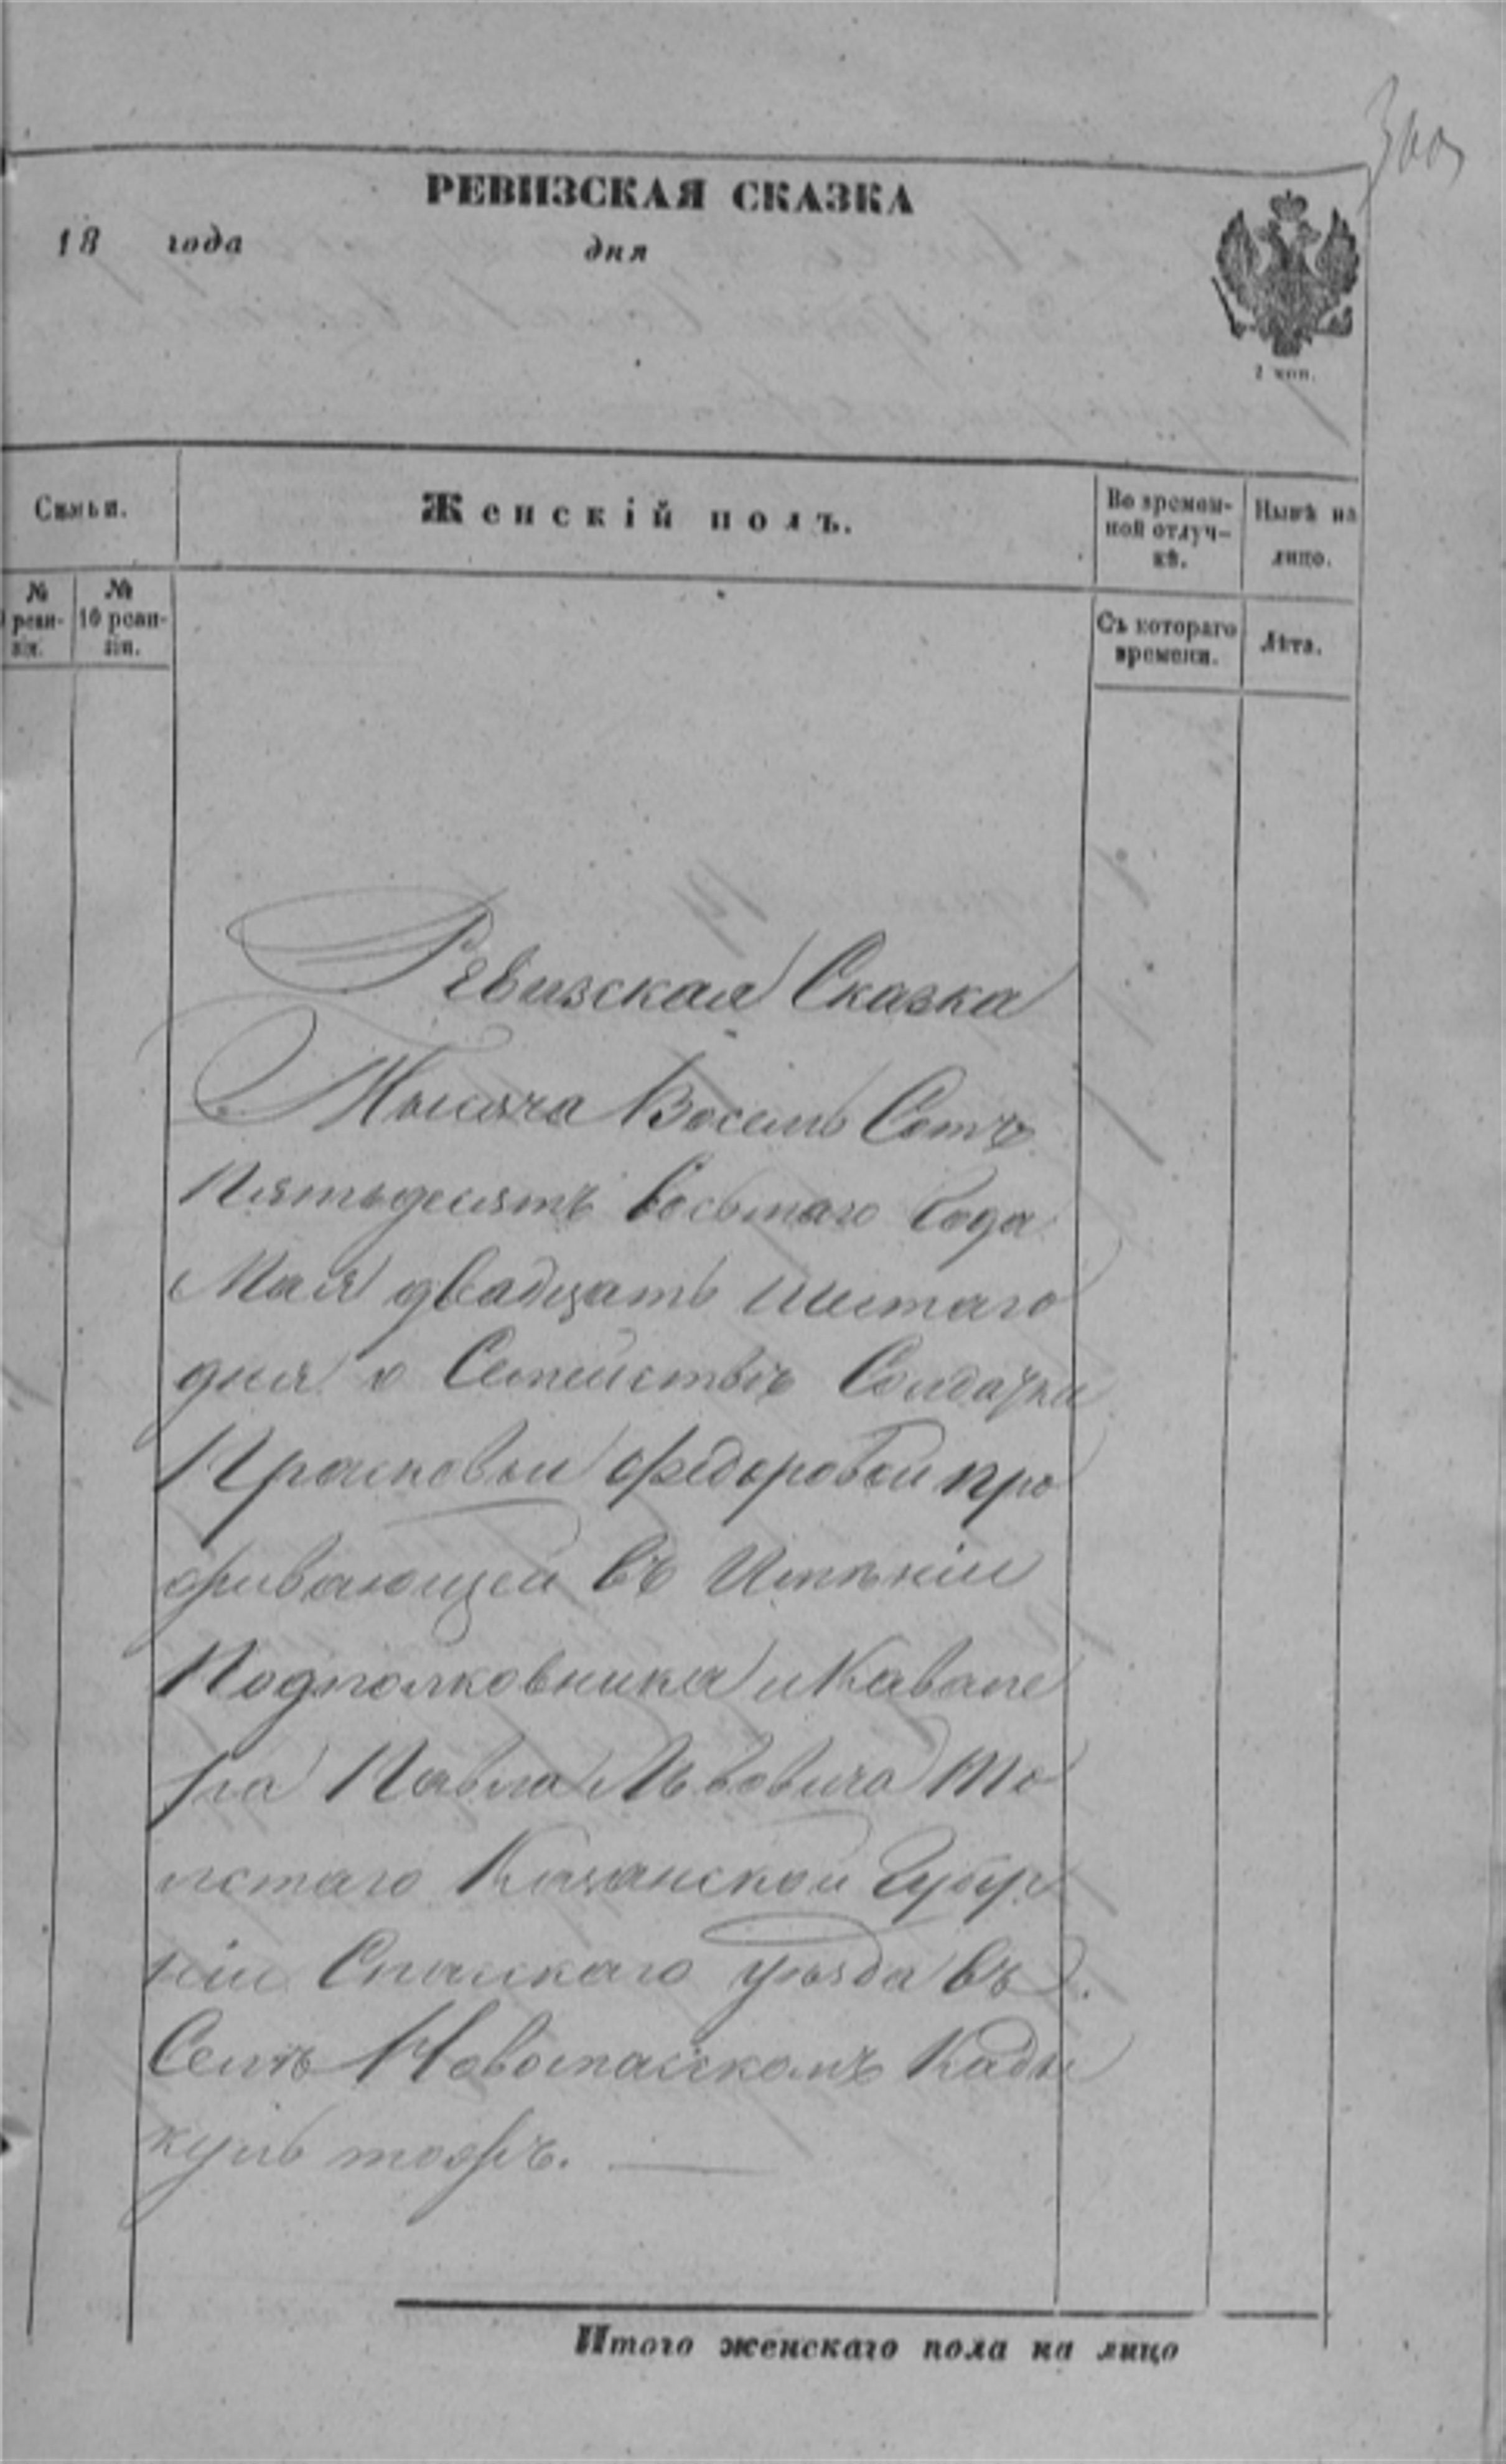 300
РЕВИЗСКАЯ СКАЗКА
18 года дня
2 коп.
Семьи. Женскій полъ. Во времен- Нынѣ на
ной отлуч- лицо.
кѣ.
№ № Съ котораго Лѣта.
реви- 10 реви- времени.
зіи. зіи.
Ревизская Сказка
Тысяча Восемь Сотъ
Пятьдесятъ восьмаго Года
Мая двадцать шестаго
дня о Семействѣ Солдатки
Прасковьи Федоровой про
живающей въ Имѣніи
Подполковника и Кавале
ра Павла Львовича То
лстаго Казанской Губер
ніи Спаскаго уѣзда въ
Селѣ Новоспаскомъ Кады
куль тожъ.
Итого женскаго пола на лицо